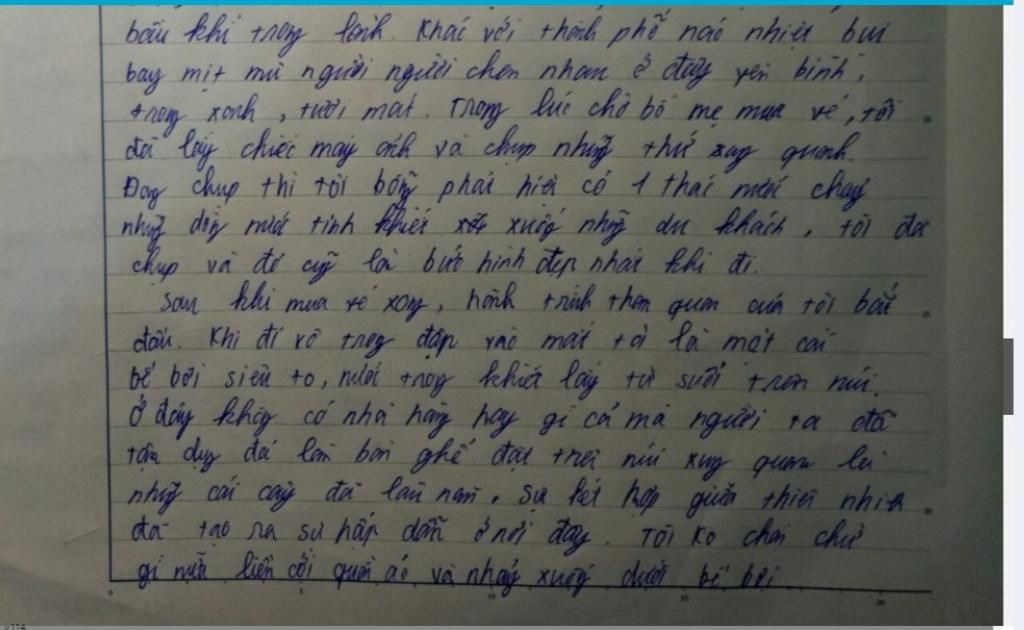 bầu khí trong lành. Khác với thành phố náo nhiệt bụi
bay mịt mù người người chen nhau ở đây yên bình,
trong xanh, tươi mát. Trong lúc chờ bố mẹ mua vé, tôi
đã lấy chiếc máy ảnh và chụp những thứ xung quanh.
Đang chụp thì tôi bỗng phát hiện có 1 thác nước chảy
những dòng nước tinh khiết xuống những du khách, tôi đã
chụp và đó cũng là bức hình đẹp nhất khi đi.
Sau khi mua vé xong, hành trình tham quan của tôi bắt
đầu. Khi đi vô trong đập vào mắt tôi là một cái
bể bơi siêu to, nước trong khiết lấy từ suối trên núi.
Ở đây không có nhà hàng hay gì cả mà người ta đã
tận dụng đá làm bàn ghế đặt trên núi xung quanh là
những cái cây đã lâu năm, sự kết hợp giữa thiên nhiên
đã tạo ra sự hấp dẫn ở nơi đây. Tôi ko chần chừ
gì nữa liền cởi quần áo và nhảy xuống dưới bể bơi.
0 5 10 15 20